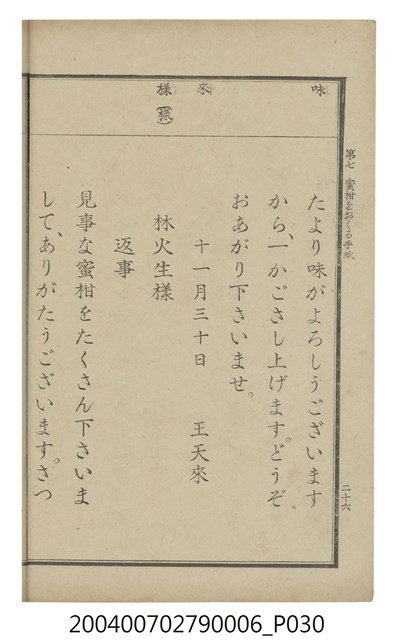 第七 蜜柑をおくる手紙
二十六
味
來
樣(様)
たより味がよろしうございます
から、一かごさし上げます。どうぞ
おあがり下さいませ。
十一月三十日 王天來
林火生樣
返事
見事な蜜柑をたくさん下さいま
して、ありがたうございます。さつ
200400702790006_P030